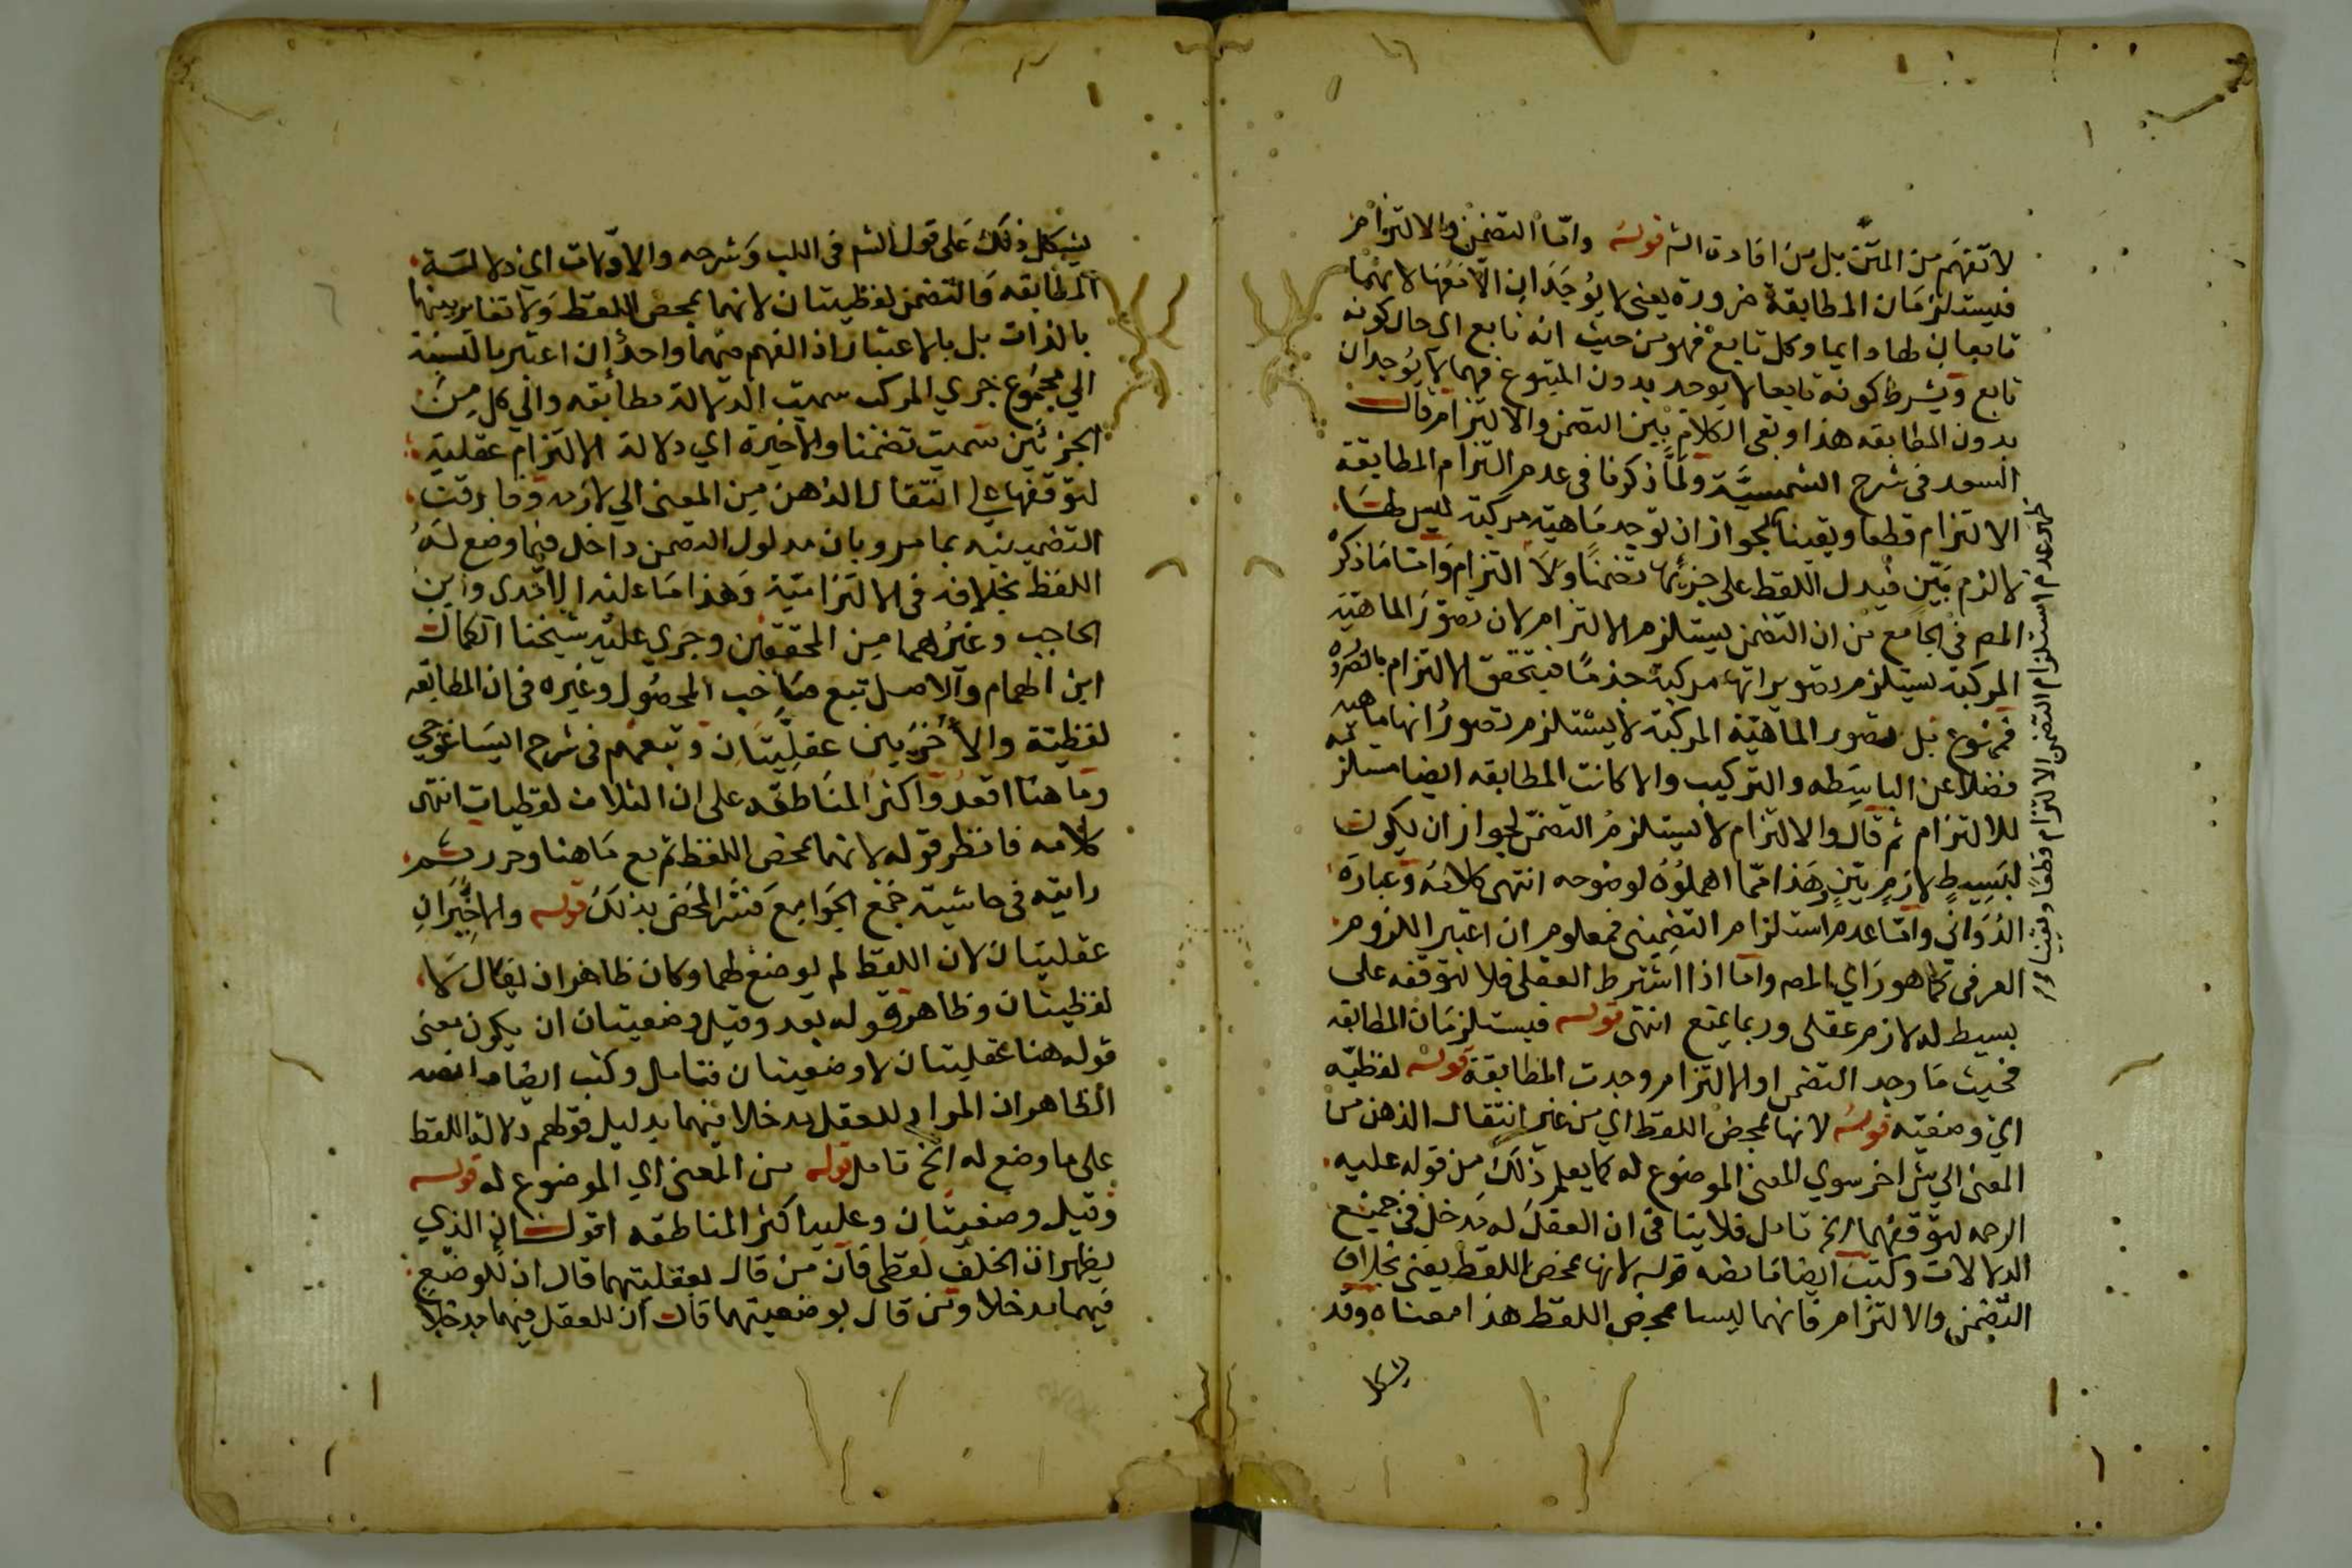 لا تفهم من المتن بل من افادة الشـ قوله واما التضمن والالتزام
فيستلزمان المطابقة ضرورة يعني لا يوجدان الا معها لانهما
تابعان لها دايما وكل تابع فهو من حيث انه تابع اي حال كونه
تابع ويشرط كونه تابعا لا يوجد بدون المتبوع فهما لا يوجدان
بدون المطابقه هذا وبقي الكلام بين التضمن والالتزام قال
السعد في شرح الشمسية ولما ذكرنا في عدم التزام المطابقة
الالتزام قطعا ويقينا لجواز ان توجد ماهية مركبة ليس لها
لازم بين فيدل اللفظ على جزئها تضمنا ولا التزام واما ما ذكره
المص في الجامع من ان التضمن يستلزم الالتزام لان تصور الماهية
المركبة يستلزم تصور انها مركبة جزما فيتحقق الالتزام بالضرورة
فممنوع بل تصور الماهية المركبة لا يستلزم تصور انها ماهية
فضلا عن البساطه والتركيب والا كانت المطابقه ايضا مستلزمة
للالتزام ثم قال والالتزام لا يستلزم التضمن لجواز ان يكون
لبسيط لازم بين وهذا مما اهملوه لوضوحه انتهى كلامه وعبارة
الدواني واما عدم استلزام التضمني فمعلوم ان اعتبر اللزوم
العرفي كما هو راي المص واما اذا اشترط العقلي فلا لتوقفه على
بسيط له لازم عقلي وربما يمنع انتهى قوله فيستلزمان المطابقه
فحيث ما وجد التضمن او الالتزام وجدت المطابقة قوله لفظيه
اي وضعيه قوله لانها بمحض اللفظ اي من غير انتقال الذهن من
المعنى الي شئ اخر سوي المعنى الموضوع له كما يعلم ذلك من قوله عليه
الرحمه لتوقفهما الخ تامل فلا ينافي ان العقل له مدخل في جميع
الدلالات وكتب ايضا ما نصه قوله لانها بمحض اللفظ يعني بخلاف
التضمن والالتزام فانهما ليسا بمحض اللفظ هذا معناه وقد
يشكل
ظهر عدم استلزام التضمن الالتزام قطعا ويقينا
يشكل ذلك على قول الشم في اللب وشرحه والاولات اي دلالة
المطابقه والتضمن لفظيتان لانهما بمحض اللفظ ولا تغاير بينهما
بالذات بل بالاعتبار اذ الفهم منهما واحد ان اعتبر بالنسبة
الي مجموع جزي المركب سميت الدلالة مطابقه والي كل من
الجزئين سميت تضمنا والاخيرة اي دلالة الالتزام عقلية
لتوقفها على انتقال الذهن من المعنى الي لازمه وفارقت
التضمينيه بما مر وبان مدلول التضمن داخل فيما وضع له
اللفظ بخلافه في الالتزامية وهذا ما عليه الآمدي وابن
الحاجب وغيرهما من المحققين وجري عليه شيخنا الكمال
ابن الهمام والاصل تبع صاحب المحصول وغيره في ان المطابقه
لفظية والأخريين عقليتان وتبعهم في شرح ايساغوجي
وما هنا اقعد واكثر المناطقه على ان الثلاث لفظيات انتهى
كلامه فانظر قوله لانهما بمحض اللفظ ثم مع ما هنا وحرر ثم
رايته في حاشية جمع الجوامع فسر المحض بذلك قوله والاخيران
عقليتان لان اللفظ لم يوضع لهما وكان ظاهر ان يقال لا
لفظيتان وظاهر قوله بعد وقيل وضعيتان ان يكون معنى
قوله هنا عقليتان لا وضعيتان فتامل وكتب ايضا ما نصه
الظاهر ان المراد للعقل مدخلا فيهما بدليل قولهم دلالة اللفظ
على ما وضع له الخ تامل قوله من المعنى اي الموضوع له قوله
وقيل وضعيتان وعليه اكثر المناطقه اقول ان الذي
يظهر ان الخلف لفظي فان من قال بعقليتهما قال ان للوضع
فيهما مدخلا ومن قال بوضعيتهما قال ان للعقل فيهما مدخلا